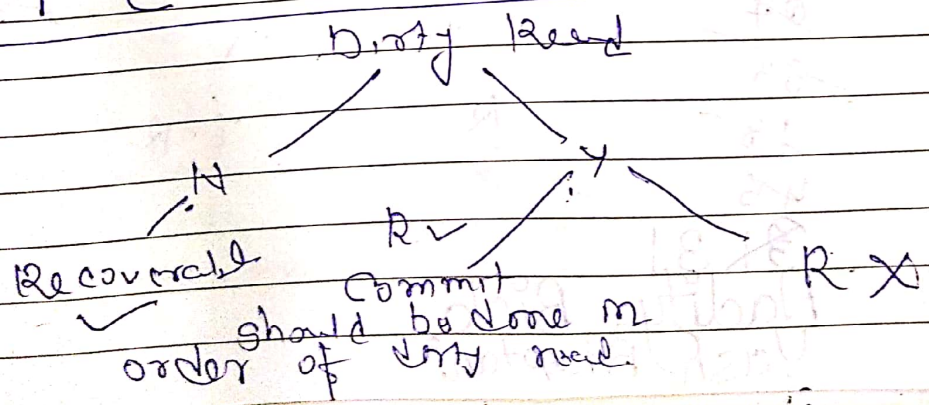 Dirty Read
N Y
Recoverable R ✓ R. X
✓ Commit
should be done in
order of dirty read.